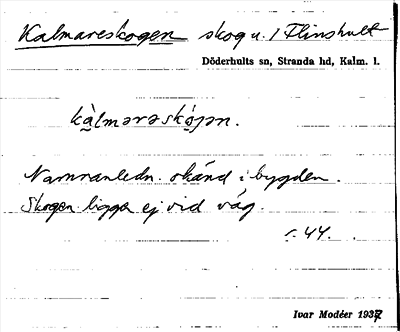 Kalmareskogen skog u. 1 Flinshult
Döderhults sn, Stranda hd, Kalm. l.
kàlmərəskógən.
Namnanledn. okänd i bygden.
Skogen ligger ej vid väg.
s. 44.
Ivar Modéer 1937